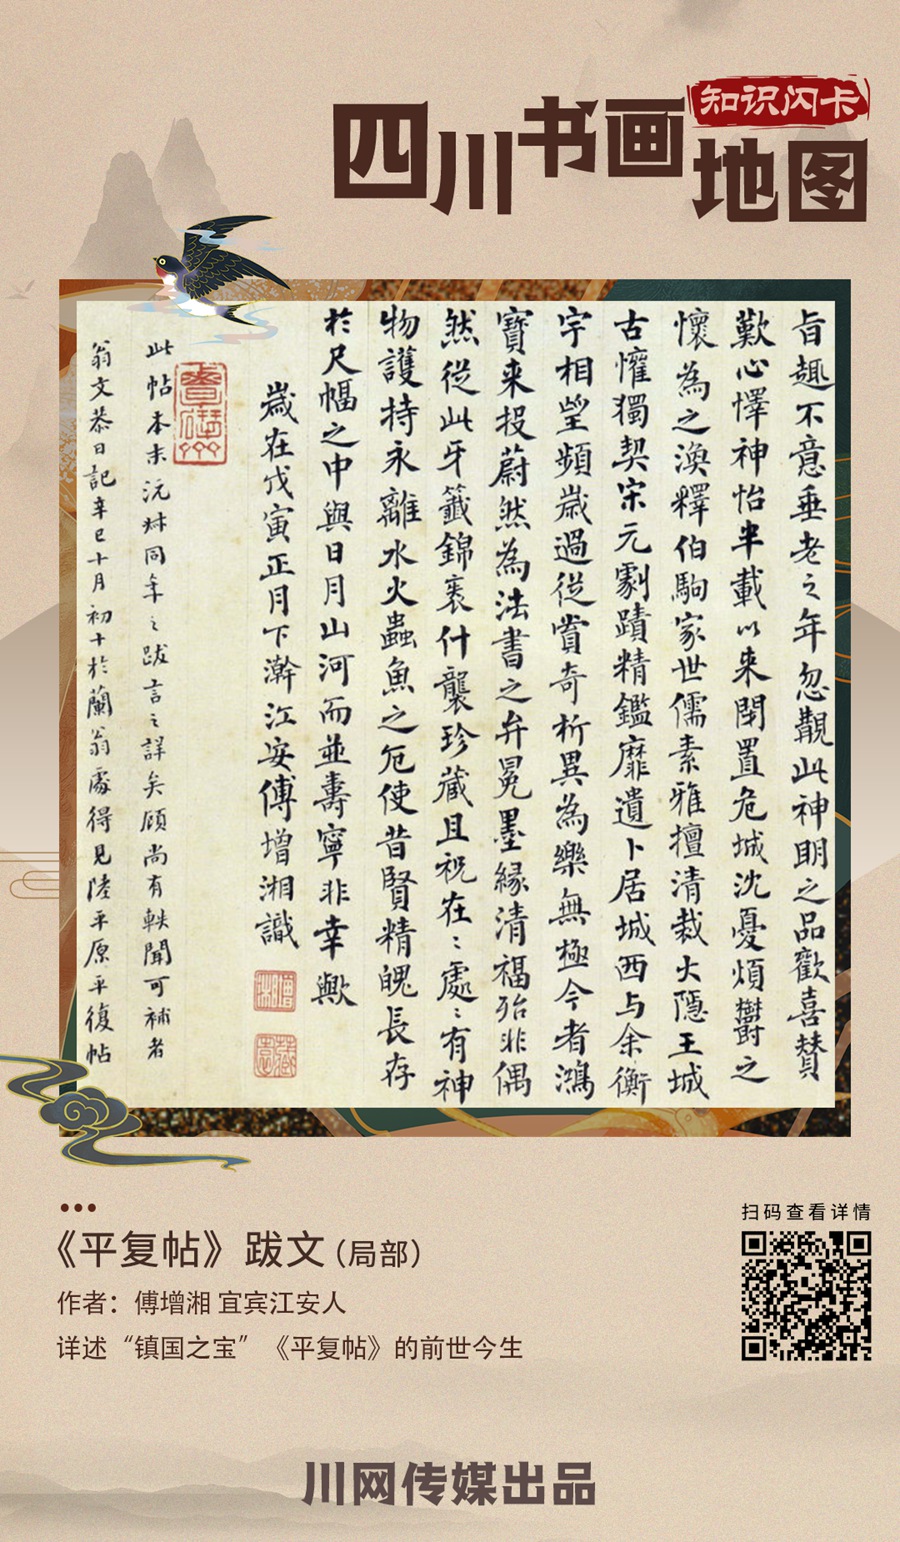 四川书画地图
知识闪卡
旨趣不意垂老之年忽觏此神明之品歡喜贊
歎心懌神怡半載以来閉置危城沈憂煩鬱之
懷為之渙釋伯駒家世儒素雅擅清裁大隱王城
古懽獨契宋元劇蹟精鑑靡遺卜居城西与余衡
宇相望頻歲過從賞奇析異為樂無極今者鴻
寶来投蔚然為法書之弁冕墨緣清福殆非偶
然從此牙籤錦裹什襲珍藏且祝在:處:有神
物護持永離水火蟲魚之厄使昔賢精魄長存
於尺幅之中與日月山河而並壽寧非幸歟
歲在戊寅正月下澣江安傅增湘識
此帖本末沅叔同年之跋言之詳矣顧尚有軼聞可補者
翁文恭日記辛巳十月初十於蘭翁處得見陸平原平復帖
《平复帖》跋文（局部）
作者：傅增湘 宜宾江安人
详述“镇国之宝”《平复帖》的前世今生
扫码查看详情
川网传媒出品